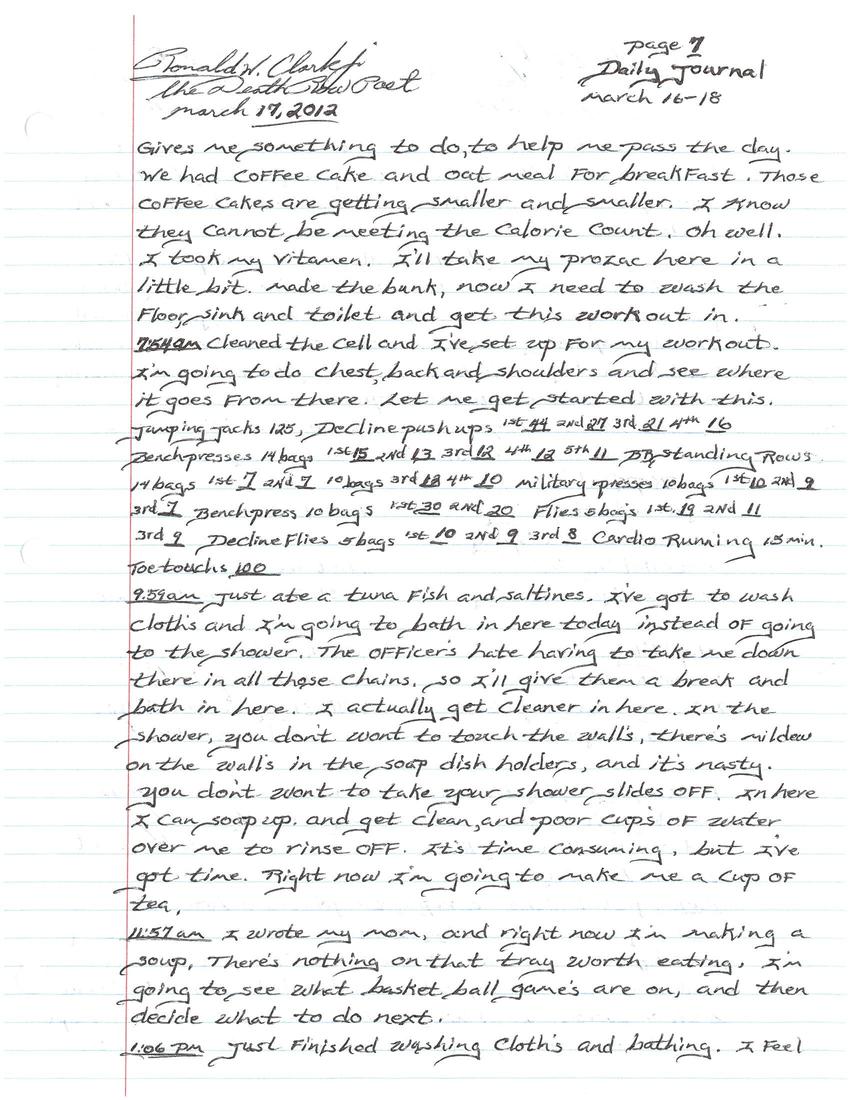 Ronald W. Clark Jr
the Death Row Poet
march 17, 2012
page 7
Daily Journal
march 16-18
Gives me something to do, to help me pass the day.
We had Coffee Cake and oat meal For breakFast. Those
Coffee Cakes are getting smaller and smaller. I Know
they Cannot be meeting the Calorie Count. oh well.
I took my vitamen. I'll take my prozac here in a
little bit. made the bunk, now I need to wash the
Floor, sink and toilet and get this workout in.
7:54am Cleaned the Cell and I've set up For my workout.
I'm going to do Chest, back and shoulders and see where
it goes From there. Let me get started with this.
Jumping jacks 125, Decline push ups 1st 44 2nd 27 3rd 21 4th 16
Benchpresses 14 bags 1st 15 2Nd 13 3rd 12 4th 12 5th 11 standing Rows
14 bags 1st 7 2nd 7 10 bags 3rd 4th 10 military presses 10 bags 1st 10 2Nd 9
3rd 7 Benchpress 10 bag's 1st 30 2Nd 20 Flies 5 bag's 1st. 19 2Nd 11
3rd 9 Decline Flies 5 bags 1st 10 2Nd 9 3rd 8 Cardio Running 15 min.
Toe touchs 100
9:59am Just ate a tuna Fish and saltines. I've got to wash
Cloth's and I'm going to bath in here today instead OF going
to the shower. The OFFicer's hate having to take me down
there in all those Chains, so I'll give them a break and
bath in here. I actually get Cleaner in here. In the
shower, you don't wont to touch the wall's, there's mildew
on the wall's in the soap dish holders, and it's nasty.
you don't wont to take your shower slides OFF. In here
I Can soap up. and get clean, and poor Cup's OF water
over me to rinse OFF. It's time Consuming, but I've
got time. Right now I'm going to make me a Cup OF
tea,
11:57am I wrote my mom, and right now I'm making a
soup, There's nothing on that tray worth eating, I'm
going to see what basket ball game's are on, and then
decide what to do next.
1:06 pm Just Finished washing Cloth's and bathing. I Feel